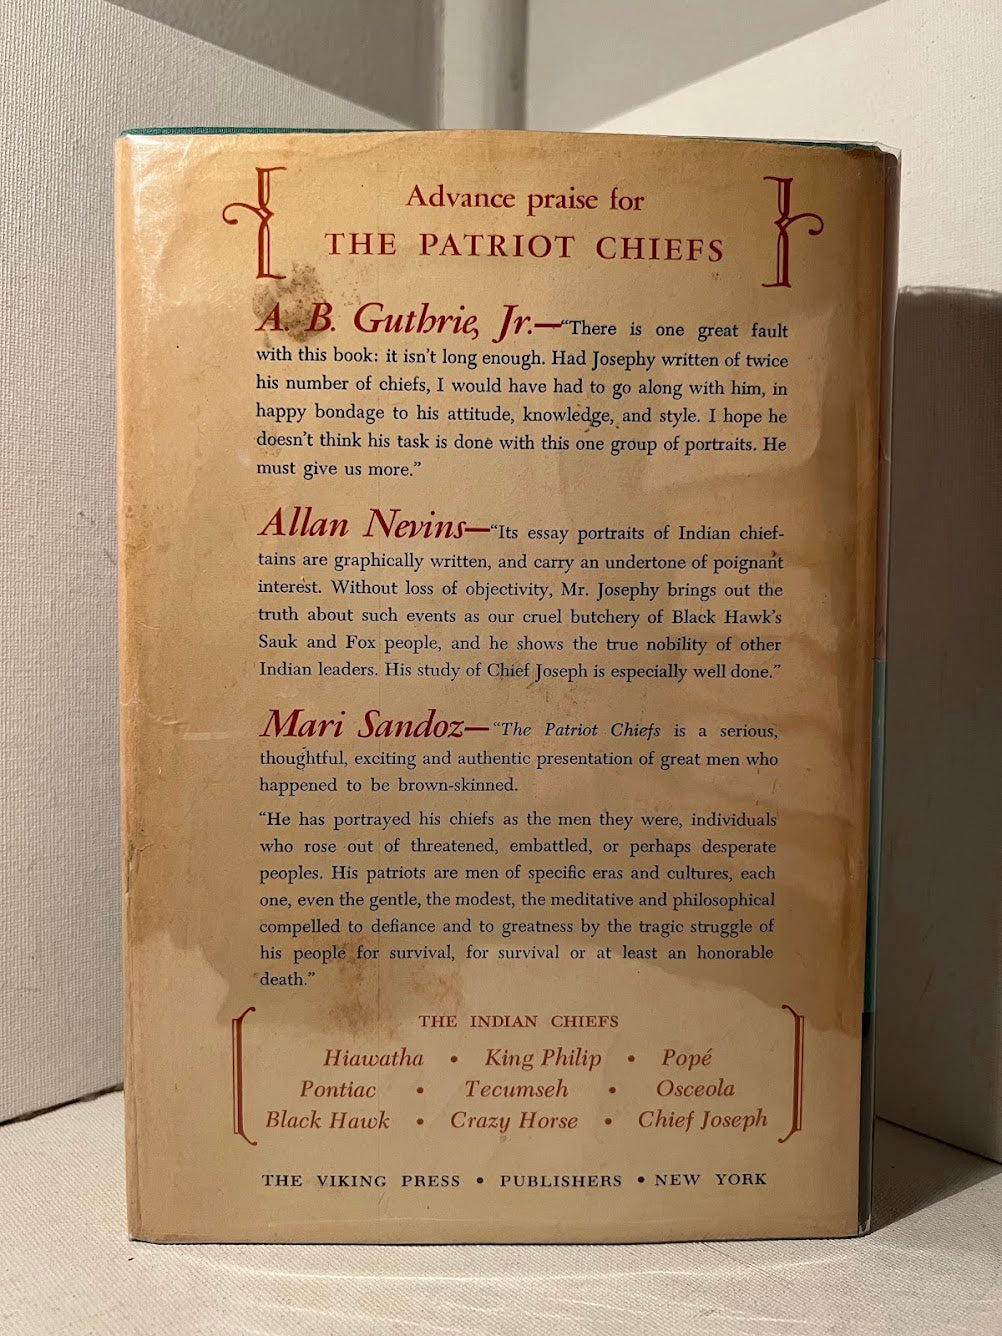 Advance praise for
THE PATRIOT CHIEFS
A. B. Guthrie, Jr.—“There is one great fault
with this book: it isn’t long enough. Had Josephy written of twice
his number of chiefs, I would have had to go along with him, in
happy bondage to his attitude, knowledge, and style. I hope he
doesn’t think his task is done with this one group of portraits. He
must give us more.”
Allan Nevins—“Its essay portraits of Indian chief-
tains are graphically written, and carry an undertone of poignant
interest. Without loss of objectivity, Mr. Josephy brings out the
truth about such events as our cruel butchery of Black Hawk’s
Sauk and Fox people, and he shows the true nobility of other
Indian leaders. His study of Chief Joseph is especially well done.”
Mari Sandoz—“The Patriot Chiefs is a serious,
thoughtful, exciting and authentic presentation of great men who
happened to be brown-skinned.
“He has portrayed his chiefs as the men they were, individuals
who rose out of threatened, embattled, or perhaps desperate
peoples. His patriots are men of specific eras and cultures, each
one, even the gentle, the modest, the meditative and philosophical
compelled to defiance and to greatness by the tragic struggle of
his people for survival, for survival or at least an honorable
death.”
THE INDIAN CHIEFS
Hiawatha • King Philip • Popé
Pontiac • Tecumseh • Osceola
Black Hawk • Crazy Horse • Chief Joseph
THE VIKING PRESS • PUBLISHERS • NEW YORK